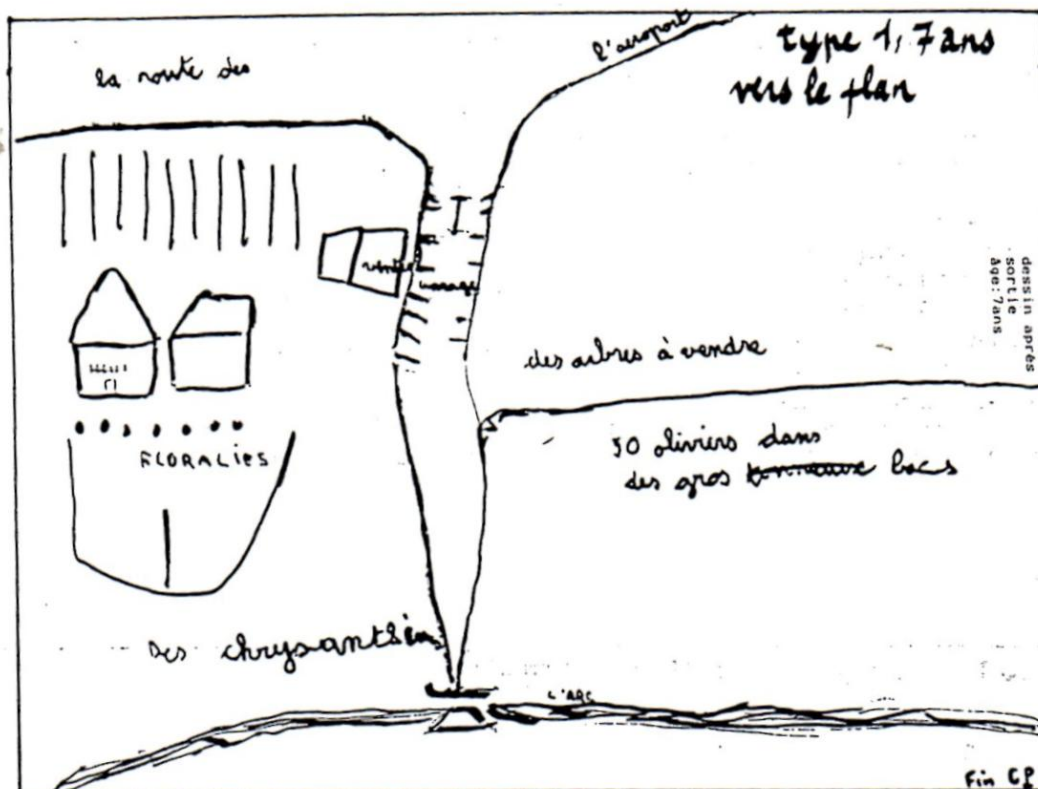 la route des
l'aéroport
type 1, 7ans
vers le plan
dessin après
sortie
âge:7ans
des arbres à vendre
50 oliviers dans
des gros tonneaux bacs
FLORALIES
Des chrysanthèm
L'ARC
Fin CP